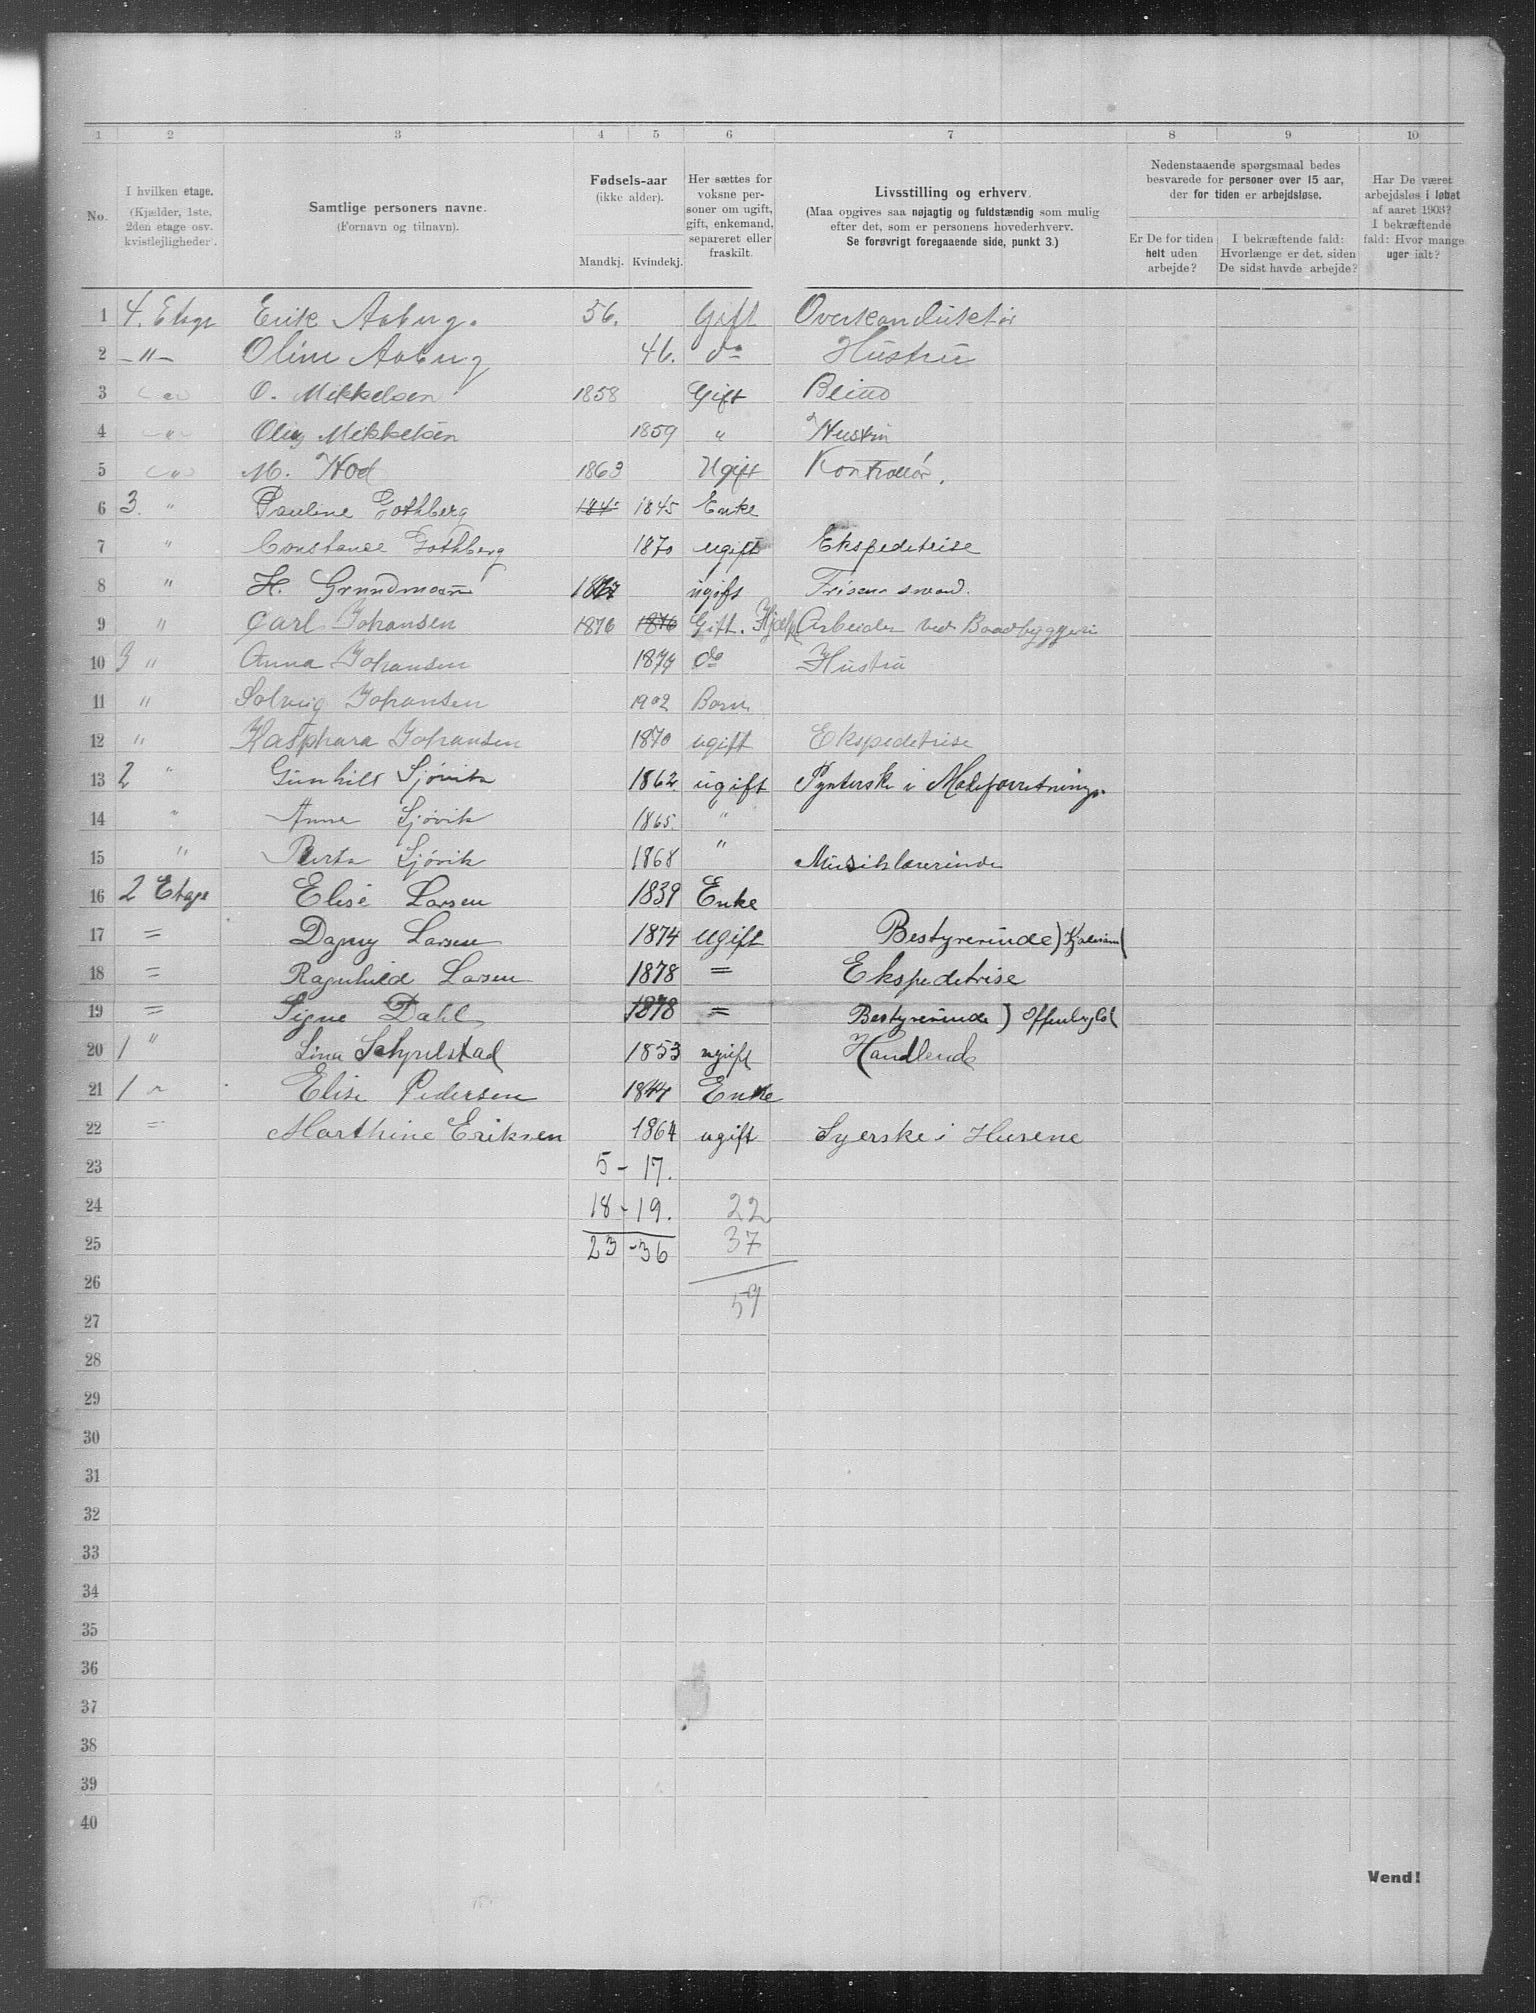 1 2 3 4 5 6 7 8 9 10
No.
I hvilken etage.
(Kjælder, 1ste,
2den etage osv.
kvistlejligheder.
Samtlige personers navne.
(Fornavn og tilnavn).
Fødsels-aar
(ikke alder).
Mandkj. Kvindekj.
Her sættes for
voksne per-
soner om ugift,
gift, enkemand,
separeret eller
fraskilt.
Livsstilling og erhverv.
(Maa opgives saa nøjagtig og fuldstændig som mulig
efter det, som er personens hovederhverv.
Se forøvrigt foregaaende side, punkt 3.)
Nedenstaaende spørgsmaal bedes
besvarede for personer over 15 aar,
der for tiden er arbejdsløse.
Er De for tiden
helt uden
arbejde?
I bekræftende fald:
Hvorlænge er det, siden
De sidst havde arbejde?
Har De været
arbejdsløs i løbet
af aaret 1903?
I bekræftende
fald: Hvor mange
uger ialt?
1 4. Etage Erik Aaberg. 56. Gift Overkonduktör
2 -"- Oline Aaberg 46. do Hustru
3 " O. Mikkelsen 1858 Gift
4 " Mikkelsen 1859 " Hustru
5 " M. Hod 1863 Ugift Kontrollør.
6 3. " Pauline Gothberg 1845 1845 Enke
7 " Constance Gothberg 1870 ugift Ekspeditrise
8 " H. Grundmann ugift Frisørsvend.
9 " Carl Johansen 1876 1876 Gift. Hjælp Arbeider ved Baadbyggeri
10 3 " Anna Johansen 1874 do Hustru
11 " Solveig Johansen 1902 Barn
12 " Kasphara Johansen 1870 ugift Ekspeditrise
13 2 " Gunhild Sjøvik 1862 ugift Pynterske i Moteforretning.
14 " Anna Sjøvik 1865. "
15 " Berta Sjøvik 1868 " Musiklærerinde
16 2 Etage Elise Larsen 1839 Enke
17 = Dagny Larsen 1874 ugift Bestyrerinde)
18 = Ragnhild Larsen 1878 = Ekspeditrise
19 = Signe Dahl 1878 = Bestyrerinde)
20 1 " Lina 1853 ugift Handlende
21 1 " Elise Pedersen 1844 Enke
22 = Marthine Eriksen 1864 ugift Syerske i Husene
23 5 - 17.
24 18 - 19. 22
25 23 - 36 37
26
27 59
28
29
30
31
32
33
34
35
36
37
38
39
40
Vend!